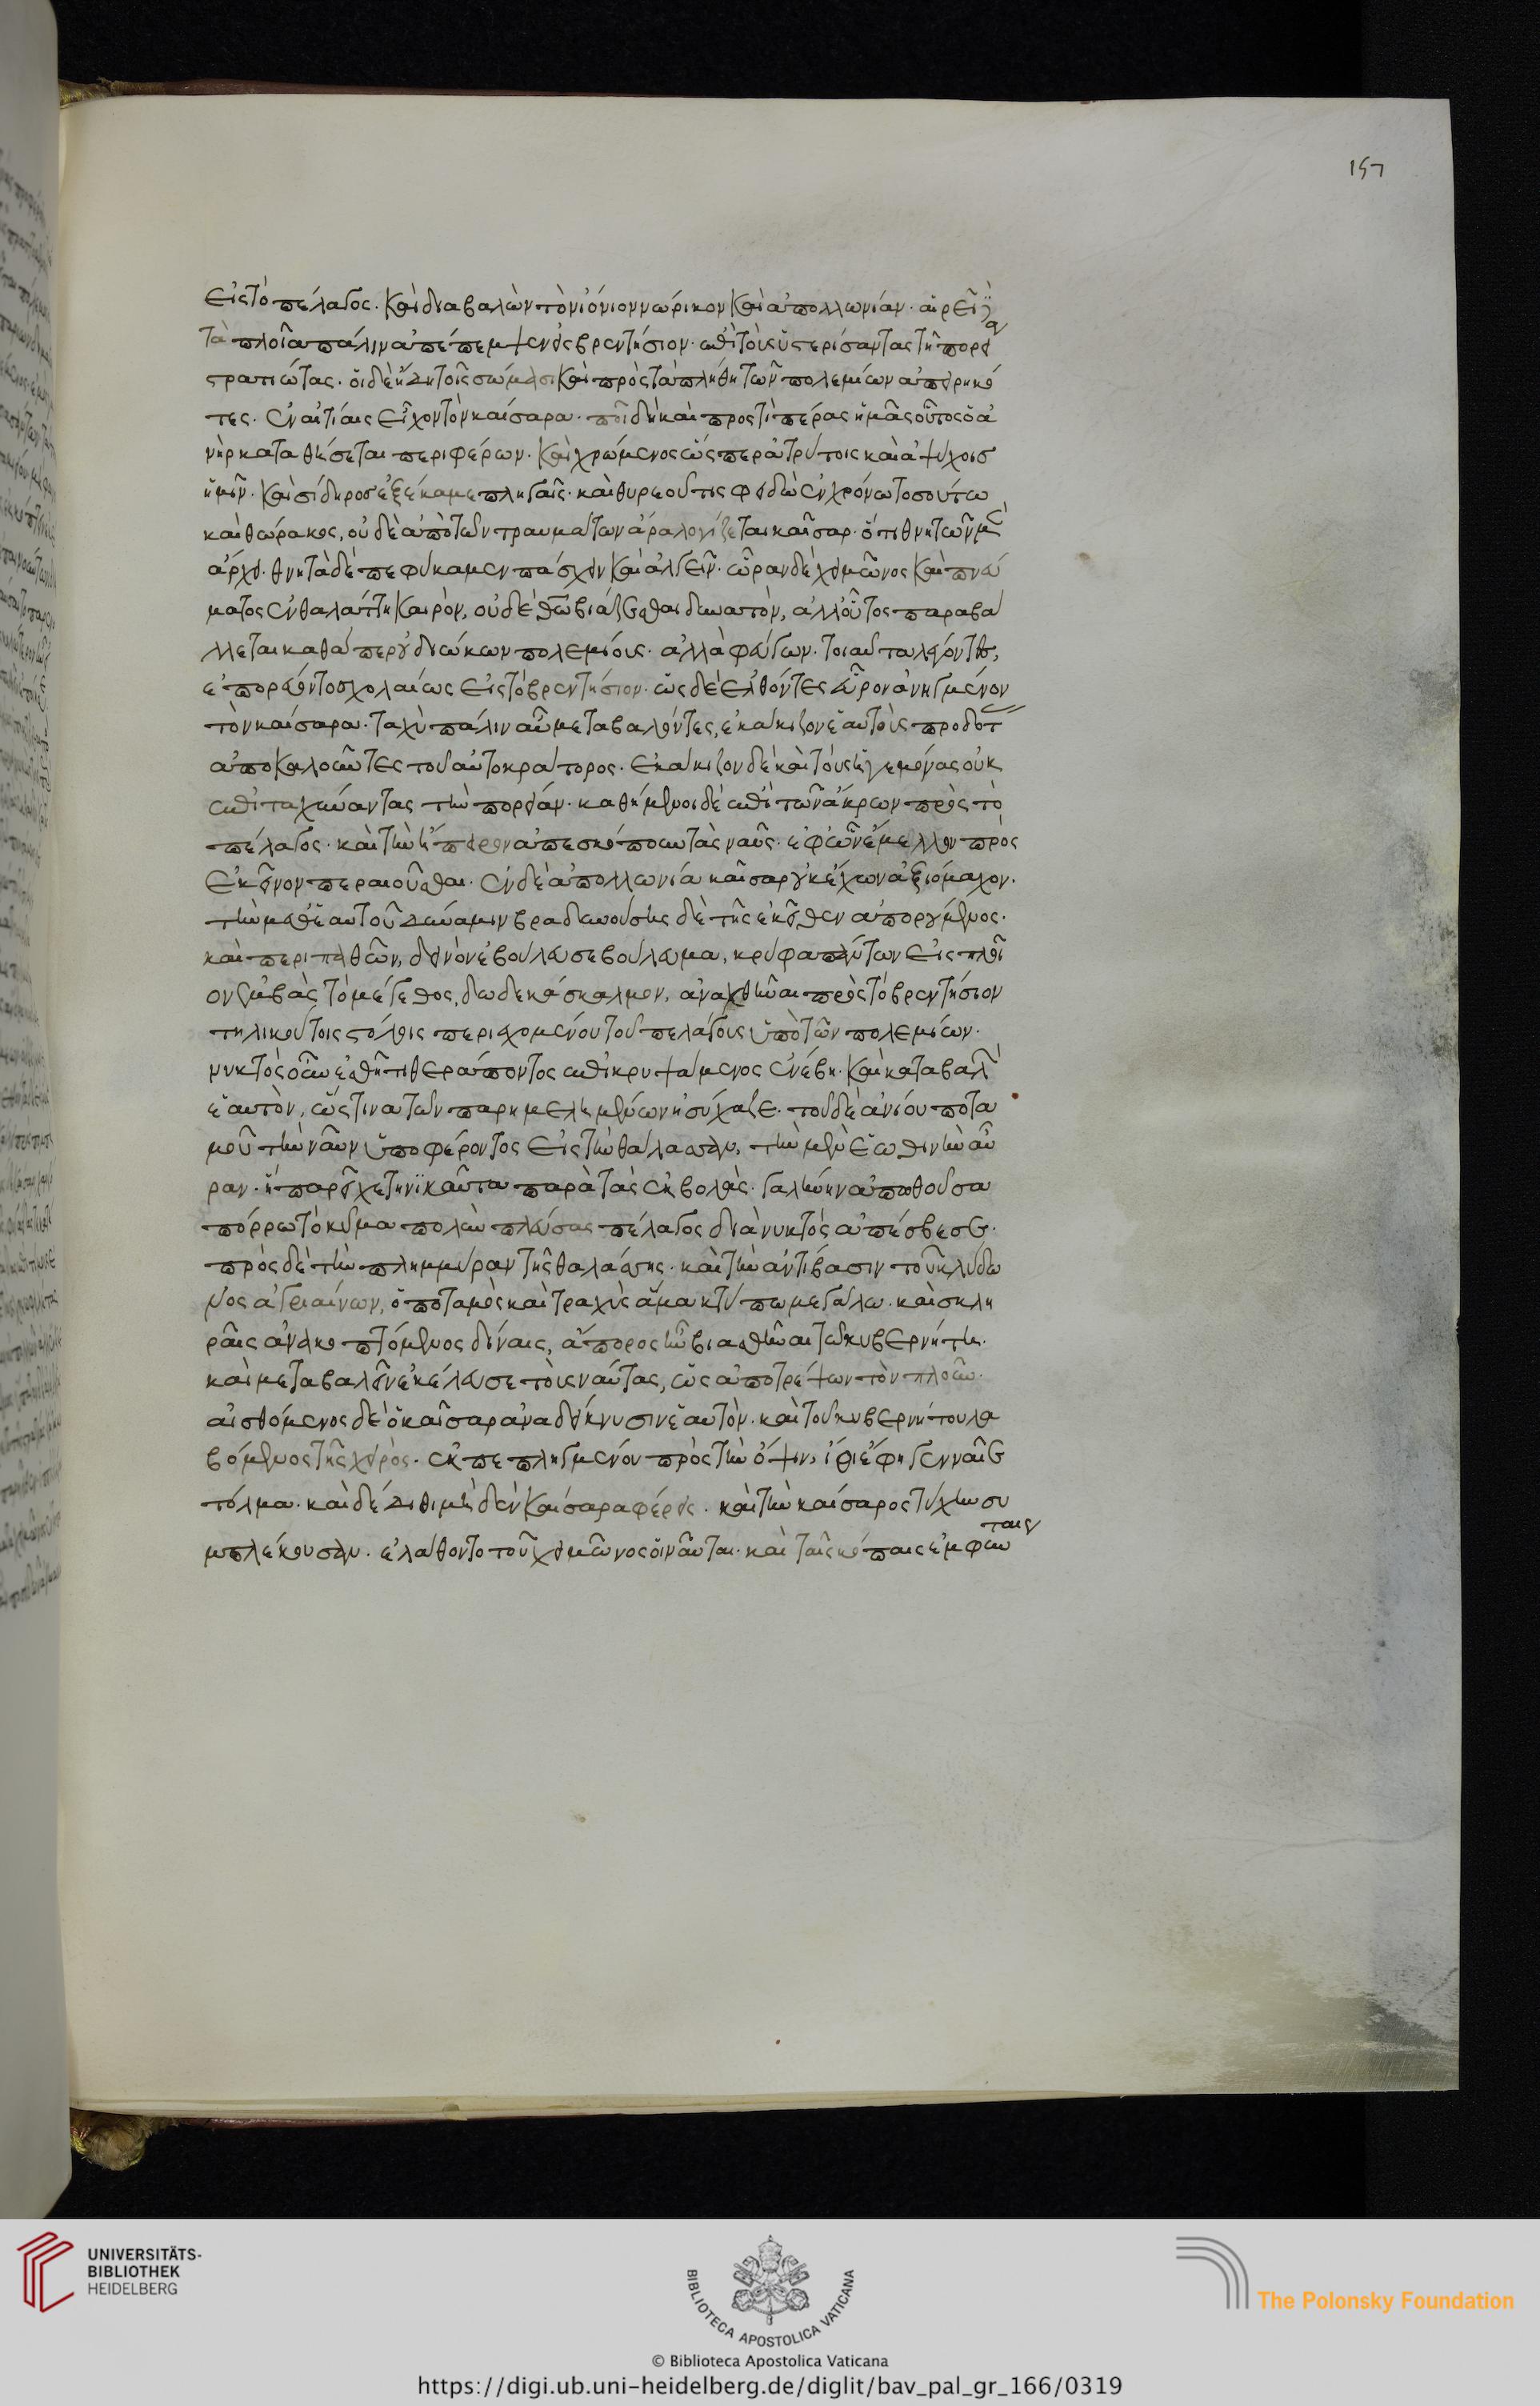 157
εἰς τὸ πέλαγος. καὶ διαβαλὼν τὸν ἰόνιον νώρικον καὶ ἀπολλωνίαν. αἱρεῖ
τὰ πλοῖα πάλιν ἀπέπεμψεν εἰς βρεντήσιον. ἐπὶ τοὺς ὑστερίσαντας τῆ πορεία
στρατιώτας. οἱ δὲ ἤδη τοῖς σώμασι καὶ πρὸς τὰ πλήθη τῶν πολεμίων ἀπειρηκό
τες. ἐν αἰτίαις εἶχον τὸν καίσαρα. ποῖ δὴ καὶ πρὸς τί πέρας ἡμᾶς οὗτος ὁ ἀ
νὴρ καταθήσεται περιφέρων. καὶ χρώμενος ὥσπερ ἀτρύτοις καὶ ἀψύχοις
ἡμῖν. καὶ σίδηρος ἐξέκαμε πληγαῖς. καὶ θυρεοῦ τις φειδὼ ἐν χρόνω τοσούτω
καὶ θώρακος, οὐδὲ ἀπὸ τῶν τραυμάτων ἀραλογίζεται καῖσαρ. ὅτι θνητῶν μὲν
ἄρχει. θνητὰ δὲ πεφύκαμεν πάσχειν καὶ ἀλγεῖν. ὥραν δὲ χειμῶνος καὶ πνεύ
ματος ἐν θαλάττη καιρὸν, οὐδὲ θεῶ βιάζεσθαι δυνατὸν, ἀλλ' οὗτος παραβά
λλεται καθάπερ οὐ διώκων πολεμίους. ἀλλὰ φεύγων. τοιαῦτα λέγοντες,
ἐπορεύοντο σχολαίως εἰς τὸ βρεντήσιον. ὡς δὲ ἐλθόντες εὗρον ἀνηγμένον
τὸν καίσαρα. ταχὺ πάλιν αὖ μεταβαλόντες, ἐκάκιζον ἑαυτοὺς προδότ
ἀποκαλοῦντες τοῦ αὐτοκράτορος. ἐκάκιζον δὲ καὶ τοὺς ἡγεμόνας οὐκ
ἐπιταχύναντας τὴν πορείαν. καθήμενοι δὲ ἐπὶ τῶν ἄκρων πρὸς τὸ
πέλαγος. καὶ τὴν ἤπειρον ἀπεσκόπουν τὰς ναῦς. ἐφ' ὧν ἔμελλον πρὸς
ἐκεῖνον περαιοῦσθαι. ἐν δὲ ἀπολλωνία καῖσαρ οὐκ ἔχων ἀξιόμαχον.
τὴν μεθ' ἑαυτοῦ δύναμιν βραδυνούσης δὲ τῆς ἐκεῖθεν ἀπορούμενος.
καὶ περιπαθῶν, δεινὸν ἐβούλευσε βούλευμα, κρύφα πάντων εἰς πλοῖ
ον ἐμβὰς τὸ μέγεθος, δωδεκάσκαλμον, ἀναχθῆναι πρὸς τὸ βρεντήσιον
τηλικούτοις στόλοις περιεχομένου τοῦ πελάγους ὑπὸ τῶν πολεμίων.
νυκτὸς οὖν ἐσθῆτι θεράποντος ἐπικρυψάμενος ἐνέβη. καὶ καταβαλὼν
ἑαυτὸν, ὥς τινα τῶν παρημελημένων ἡσύχαζε. τοῦ δὲ ἀνίου ποτα
μοῦ τὴν ναῦν ὑποφέροντος εἰς τὴν θάλασσαν, τὴν μὲν ἑωθινὴν αὔ
ραν. ἣ παρεῖχε τηνικαῦτα παρὰ τὰς ἐκβολὰς. γαλήνην ἀπωθοῦσα
πόρρω τὸ κῦμα πολὺν πλεύσας πέλαγος διὰ νυκτὸς ἀπέσβεσε.
πρὸς δὲ τὴν πλημμύραν τῆς θαλάσσης. καὶ τὴν ἀντίβασιν τοῦ κλύδω
νος ἀγριαίνων, ὁ ποταμὸς καὶ τραχὺς ἅμα κτύπω μεγάλω. καὶ σκλη
ραῖς ἀνακοπτόμενος δίναις, ἄπορος ἦν βιασθῆναι τῶ κυβερνήτη.
καὶ μεταβαλεῖν ἐκέλευσε τοὺς ναύτας, ὡς ἀποτρέψων τὸν πλοῦν.
αἰσθόμενος δὲ ὁ καῖσαρ ἀναδείκνυσιν ἑαυτὸν. καὶ τοῦ κυβερνήτου λα
βόμενος τῆς χειρὸς. ἐκπεπληγμένου πρὸς τὴν ὄψιν, ἴθι ἔφη γενναῖε
τόλμα. καὶ δέδιθι μηδὲν καίσαρα φέρεις. καὶ τὴν καίσαρος τύχην συ
μπλέουσαν. ἐλάθοντο τοῦ χειμῶνος οἱ ναῦται. καὶ ταῖς κώπαις ἐμφύν
τες
UNIVERSITÄTS-
BIBLIOTHEK
HEIDELBERG
BIBLIOTECA APOSTOLICA VATICANA
The Polonsky Foundation
© Biblioteca Apostolica Vaticana
https://digi.ub.uni-heidelberg.de/diglit/bav_pal_gr_166/0319